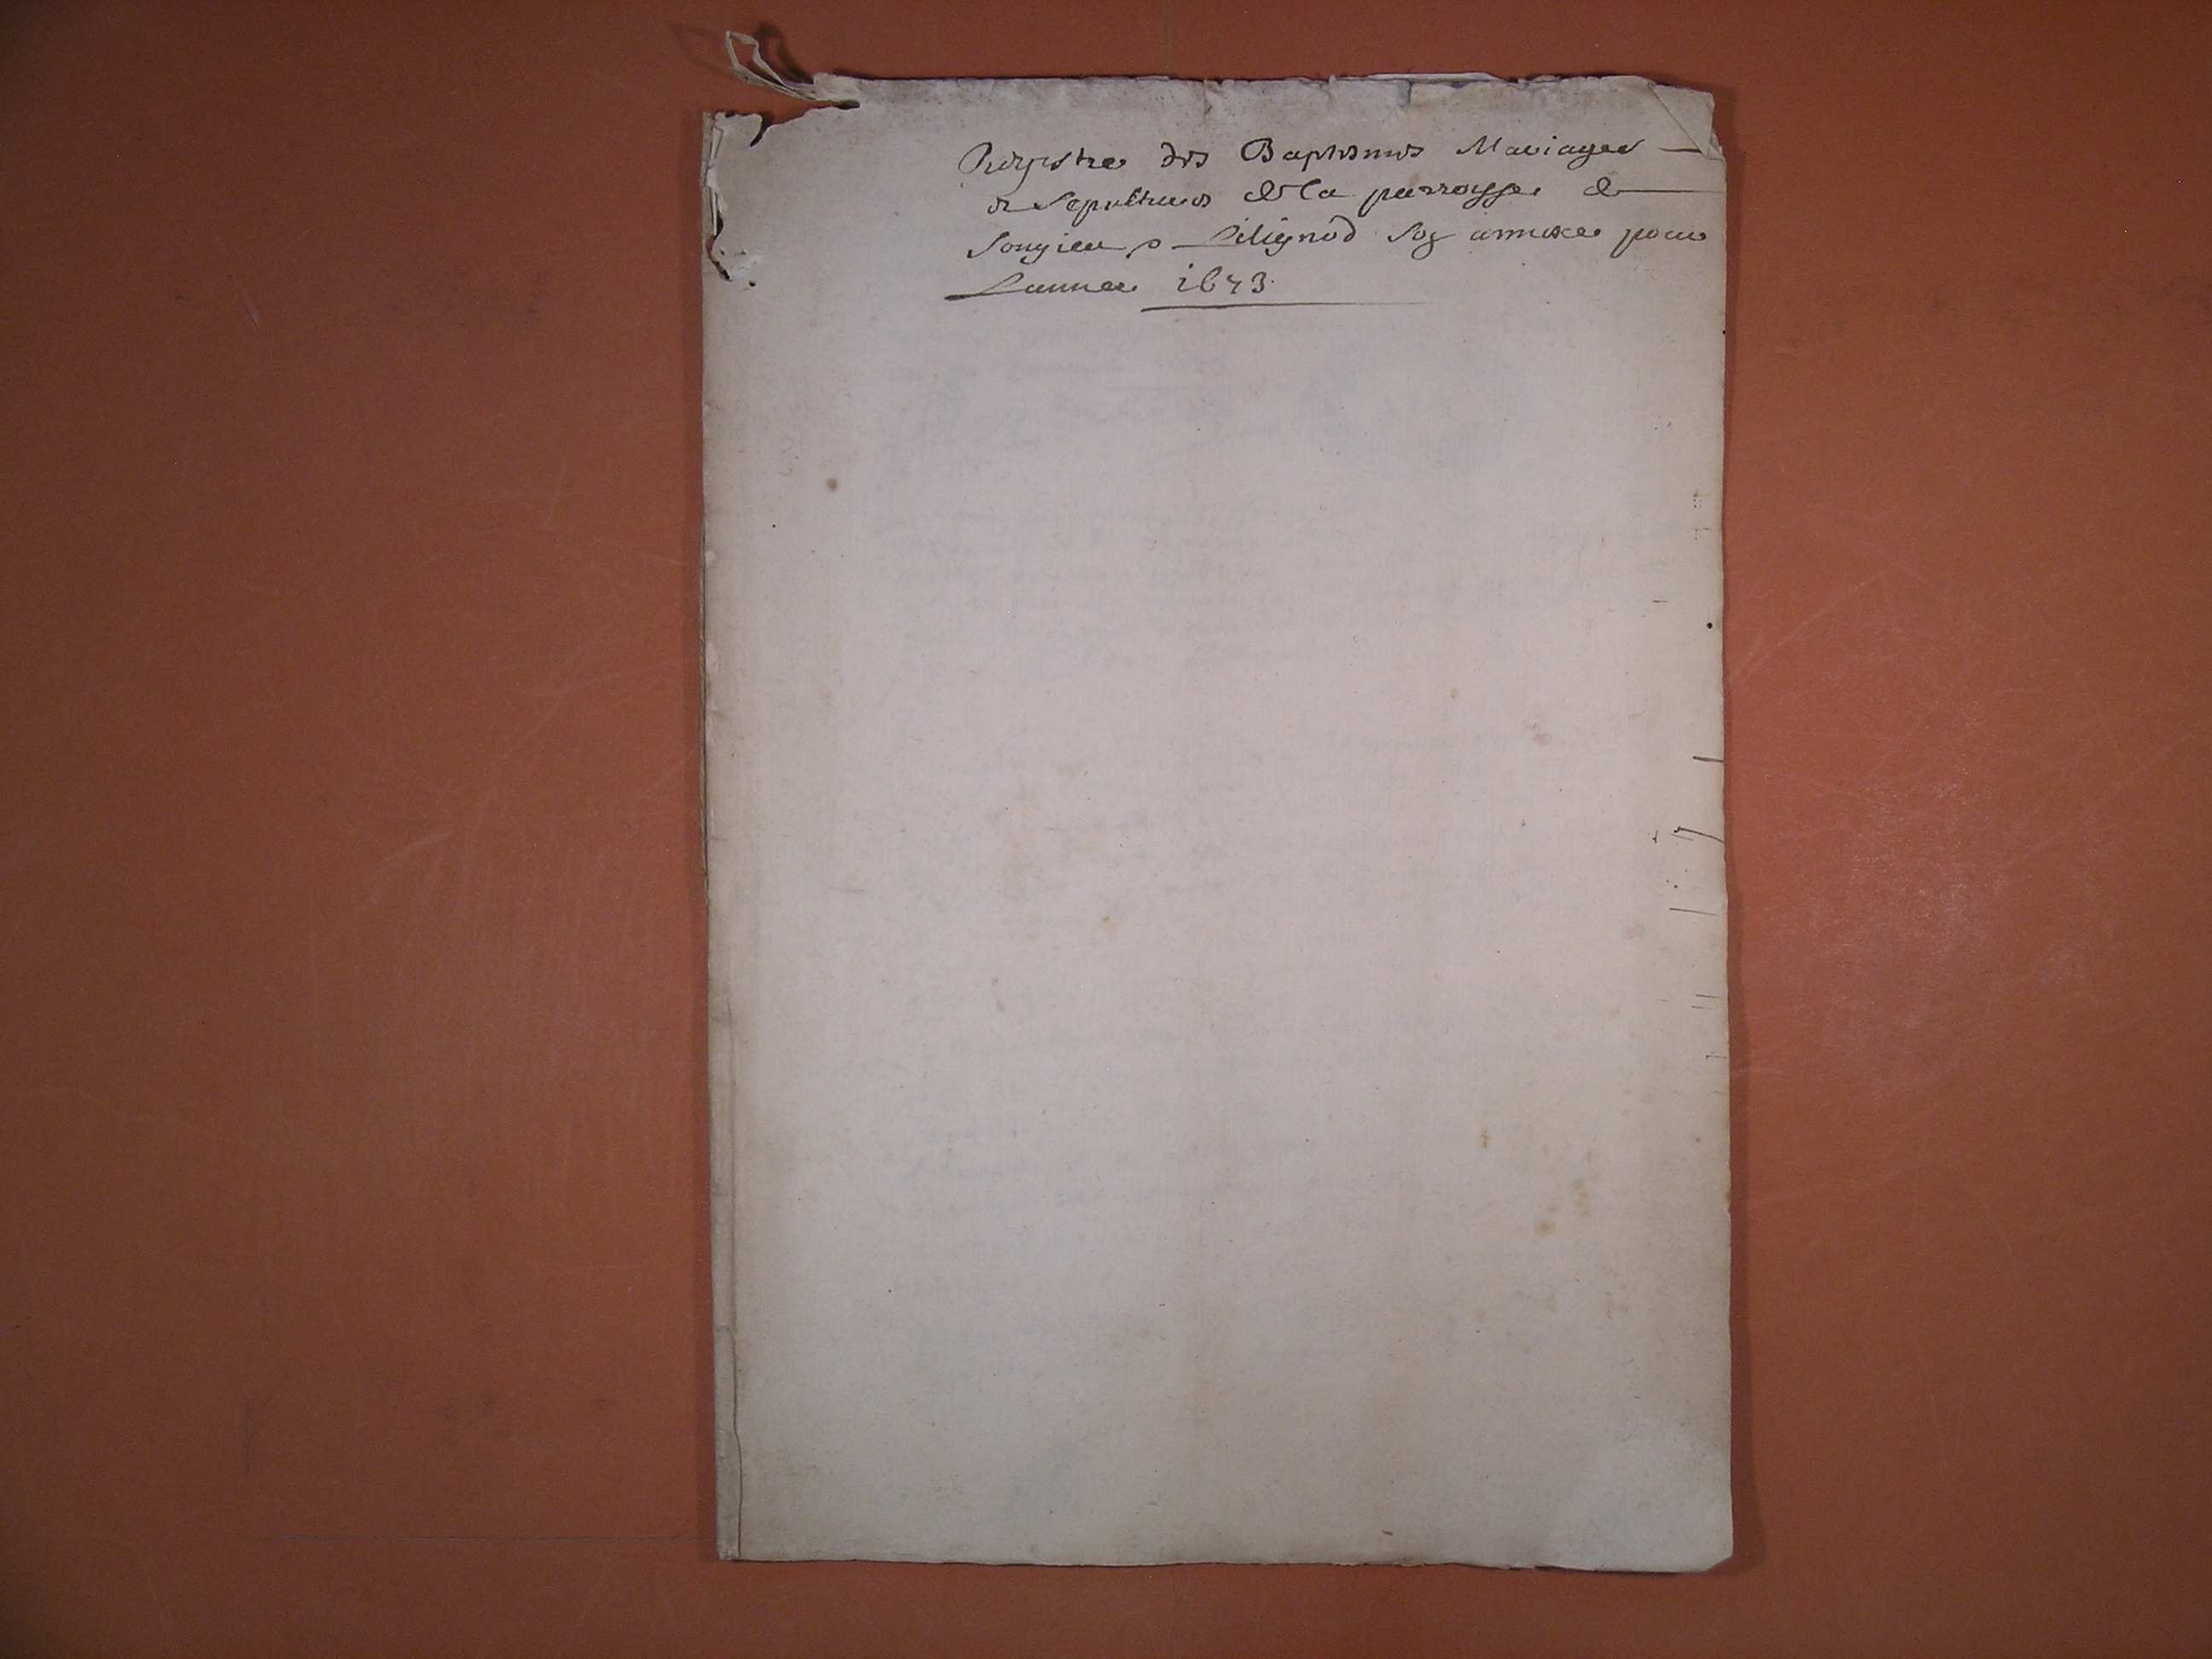 Registre des Baptesmes Mariages
et Sepultures de la parroisse de
Songieu et Lilignod son annexe pour
Lannee 1673